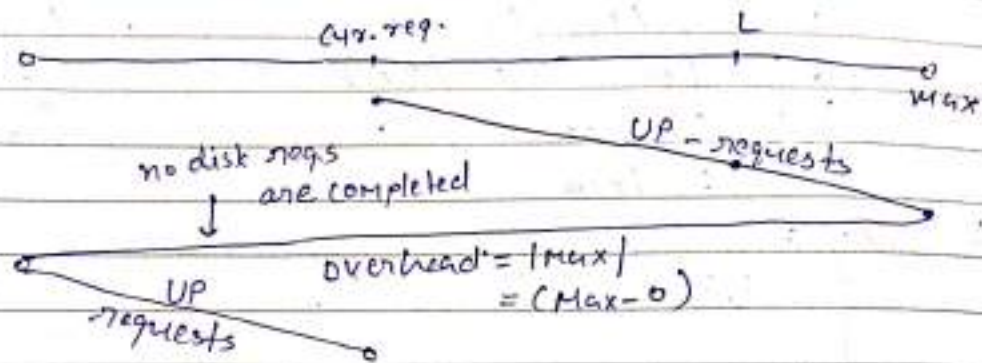 Cur. req. L
0 Max
UP - requests
no disk reqs
are completed
overhead = |Max|
= (Max - 0)
UP
requests